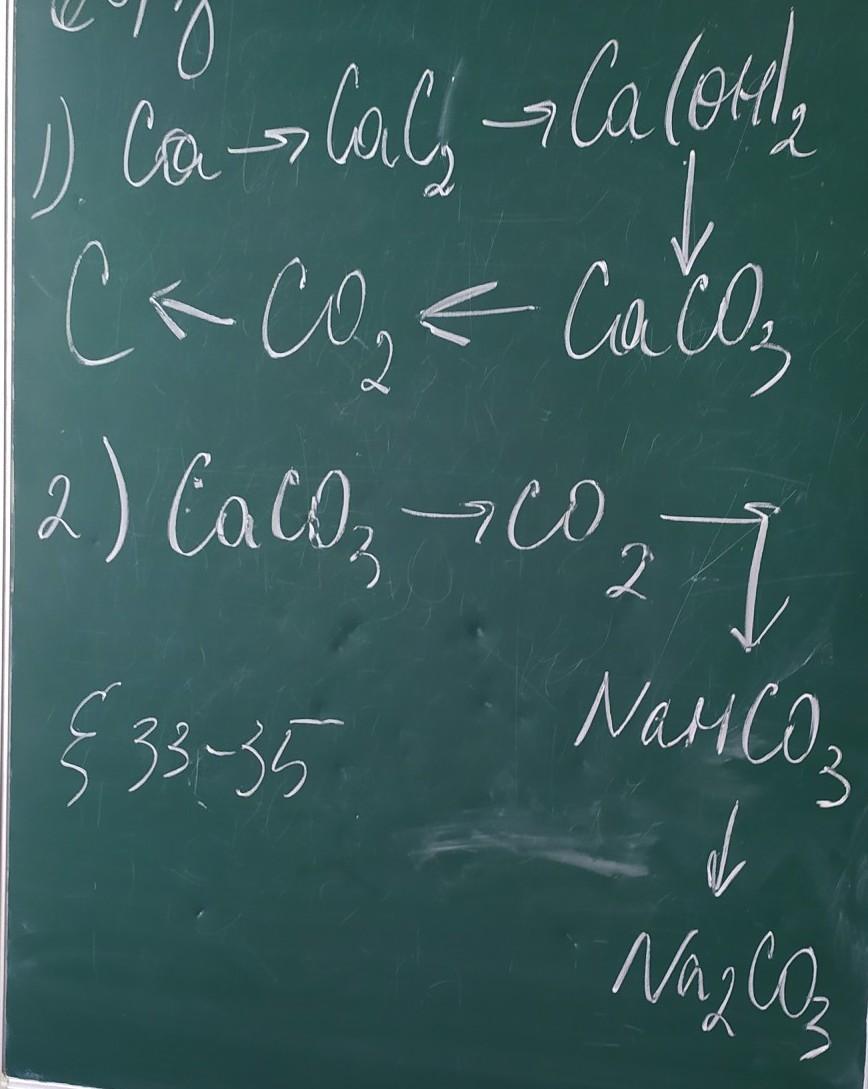 1). Ca → CaC₂ → Ca(OH)₂
↓
C ← CO₂ ← CaCO₃
2) CaCO₃ → CO₂ →
↓
NaHCO₃
§ 33-35
↓
Na₂CO₃